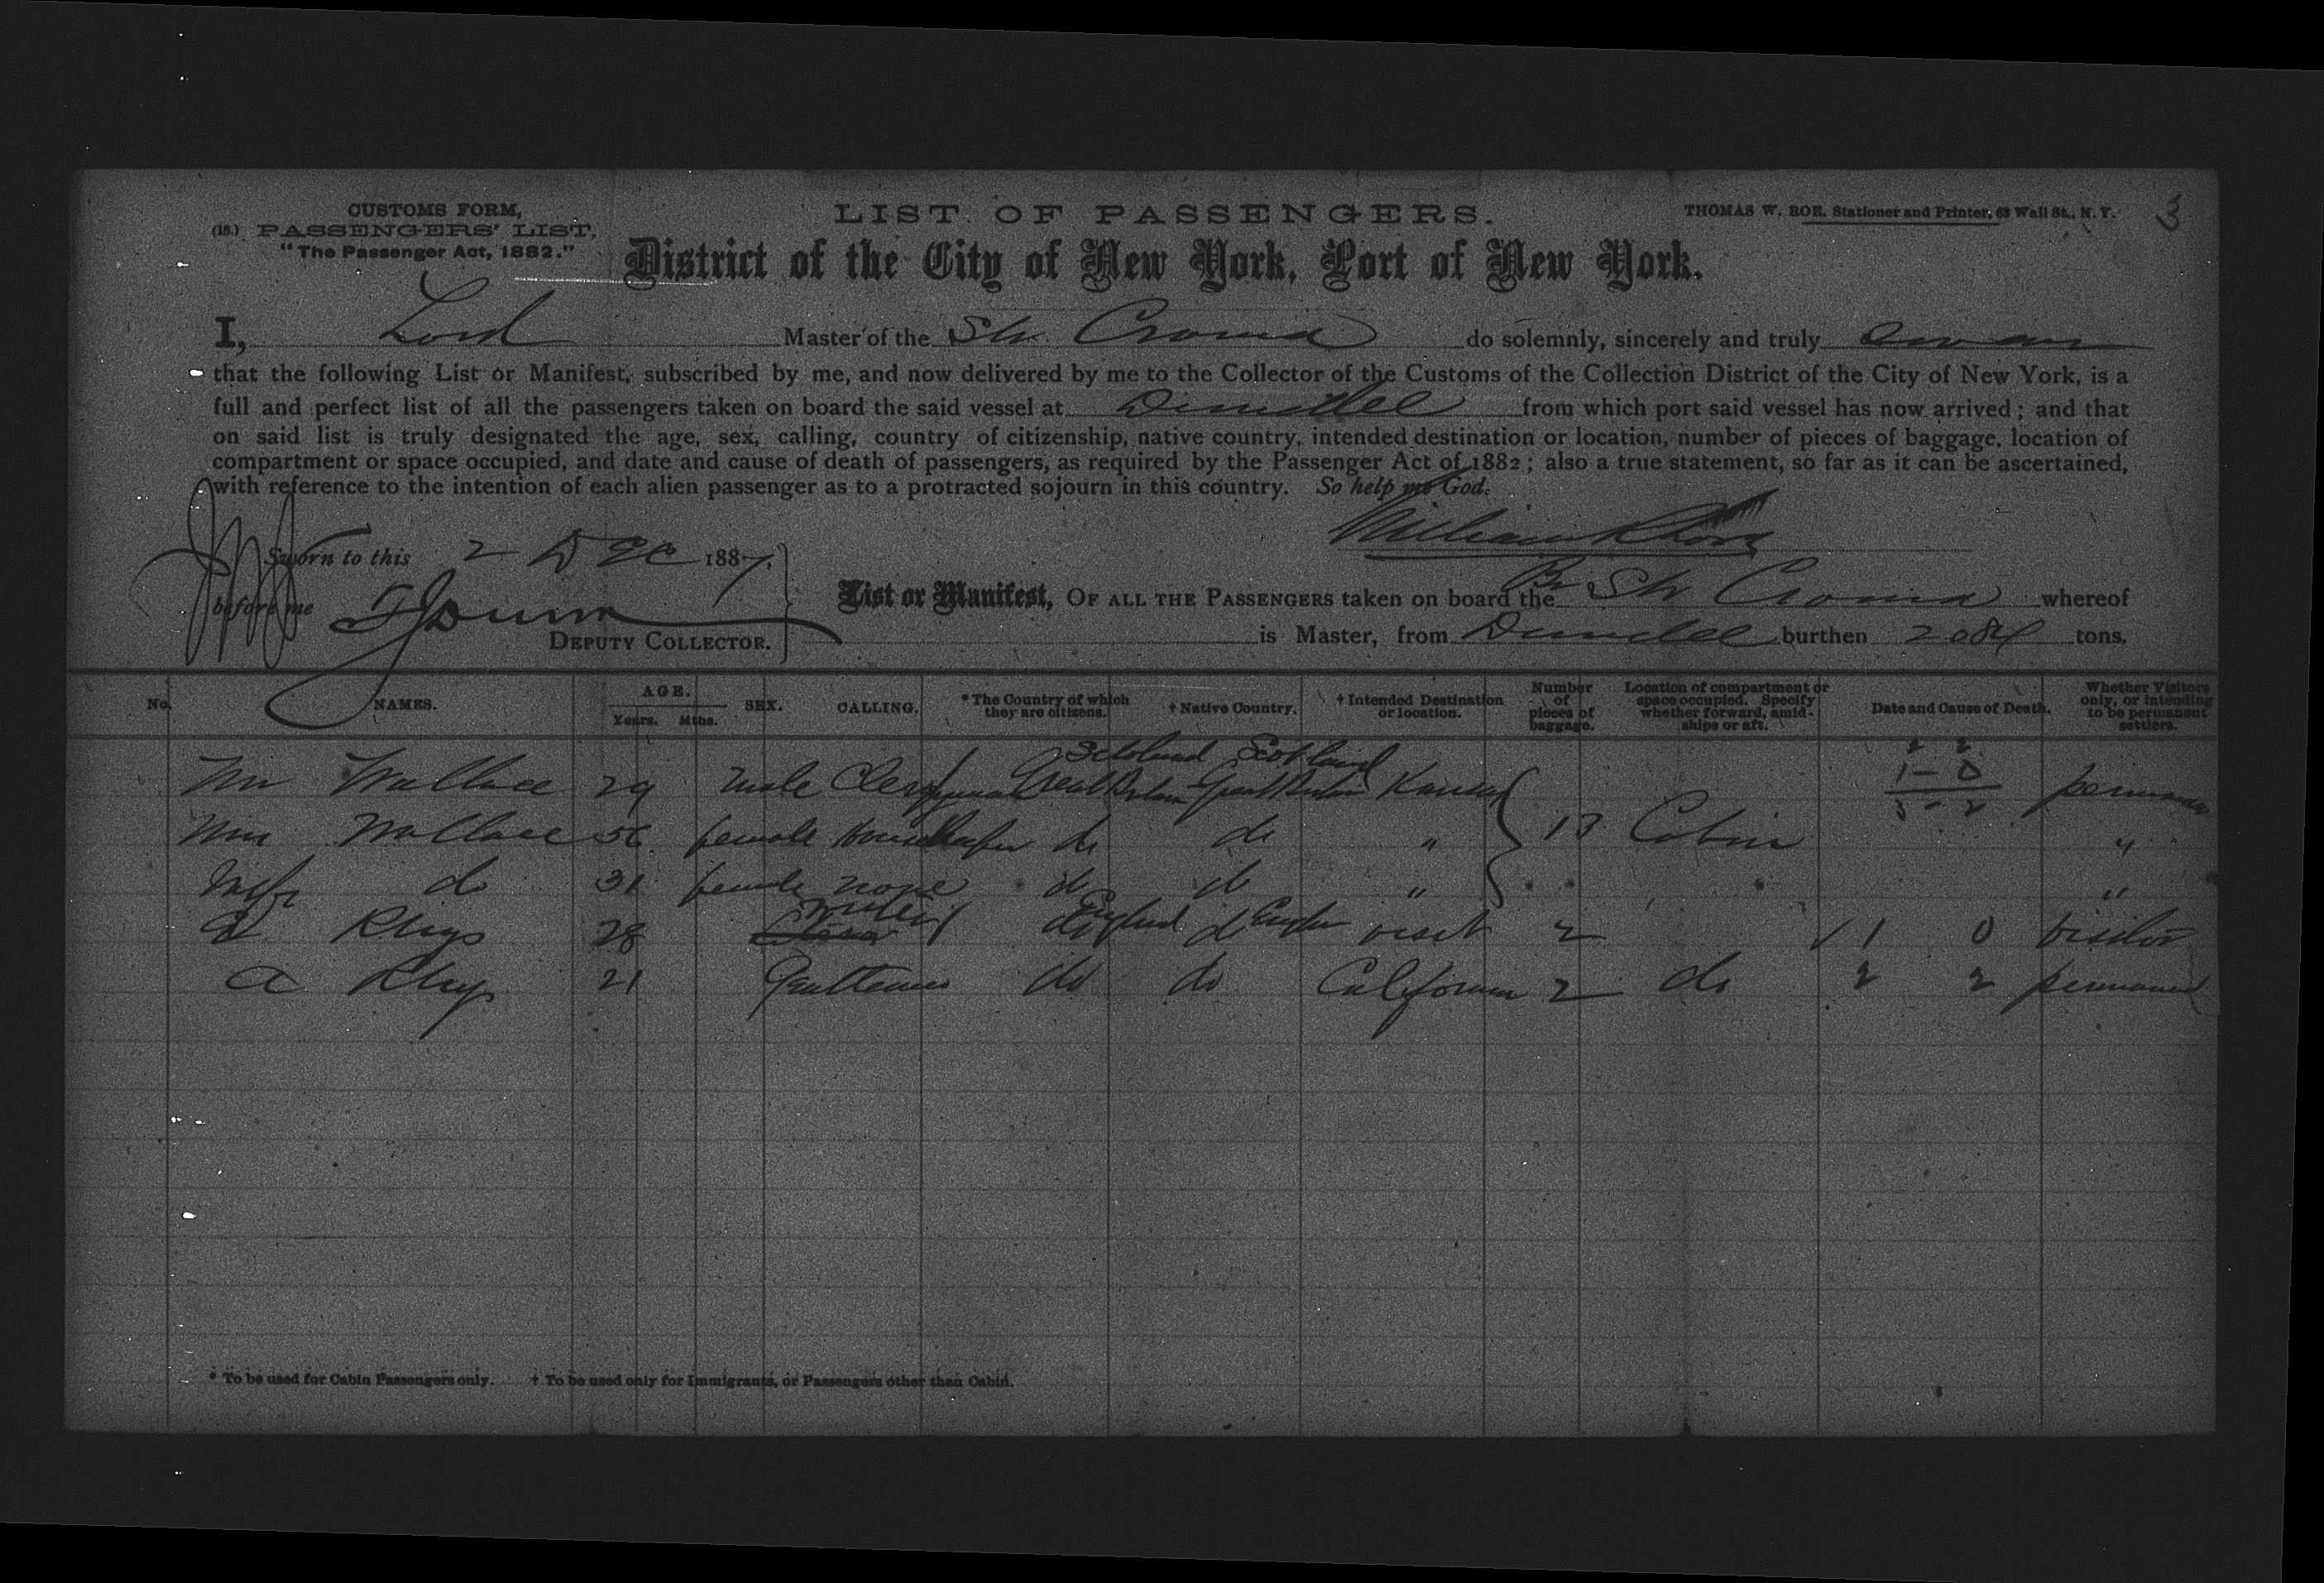 CUSTOMS FORM,
(18.) PASSENGERS' LIST.
"The Passenger Act, 1882."
LIST OF PASSENGERS.
THOMAS W. ROE, Stationer and Printer, 63 Wall St., N. Y.
3
District of the City of New York, Port of New York.
I, Lord Master of the Str. Croma do solemnly, sincerely and truly swear
that the following List or Manifest, subscribed by me, and now delivered by me to the Collector of the Customs of the Collection District of the City of New York, is a
full and perfect list of all the passengers taken on board the said vessel at Dundee from which port said vessel has now arrived; and that
on said list is truly designated the age, sex, calling, country of citizenship, native country, intended destination or location, number of pieces of baggage, location of
compartment or space occupied, and date and cause of death of passengers, as required by the Passenger Act of 1882; also a true statement, so far as it can be ascertained,
with reference to the intention of each alien passenger as to a protracted sojourn in this country. So help me God.
William Lord
Sworn to this 2 Dec 1887,
before me
DEPUTY COLLECTOR.
List or Manifest, OF ALL THE PASSENGERS taken on board the Br Str Croma whereof
is Master, from Dundee burthen 2084 tons.
No. NAMES. AGE. Years. Mths. SEX. CALLING. * The Country of which they are citizens. † Native Country. † Intended Destination or location. Number of pieces of baggage. Location of compartment or space occupied. Specify whether forward, amidships or aft. Date and Cause of Death. Whether Visitors only, or intending to be permanent settlers.
Scotland Scotland 2 2
Mr Wallace 29 male Clergyman Great Britain Great Britain Kansas 1 - 0 permanent
3 - 2
Wallace 56 female Housekeeper do do " 13 Cabin "
do 31 female none do do " "
Rhys 28 do England do England visit 2 1 0 visitor
A Rhys 21 Gentleman do do California 2 do 2 2 permanent
* To be used for Cabin Passengers only. † To be used only for Immigrants, or Passengers other than Cabin.